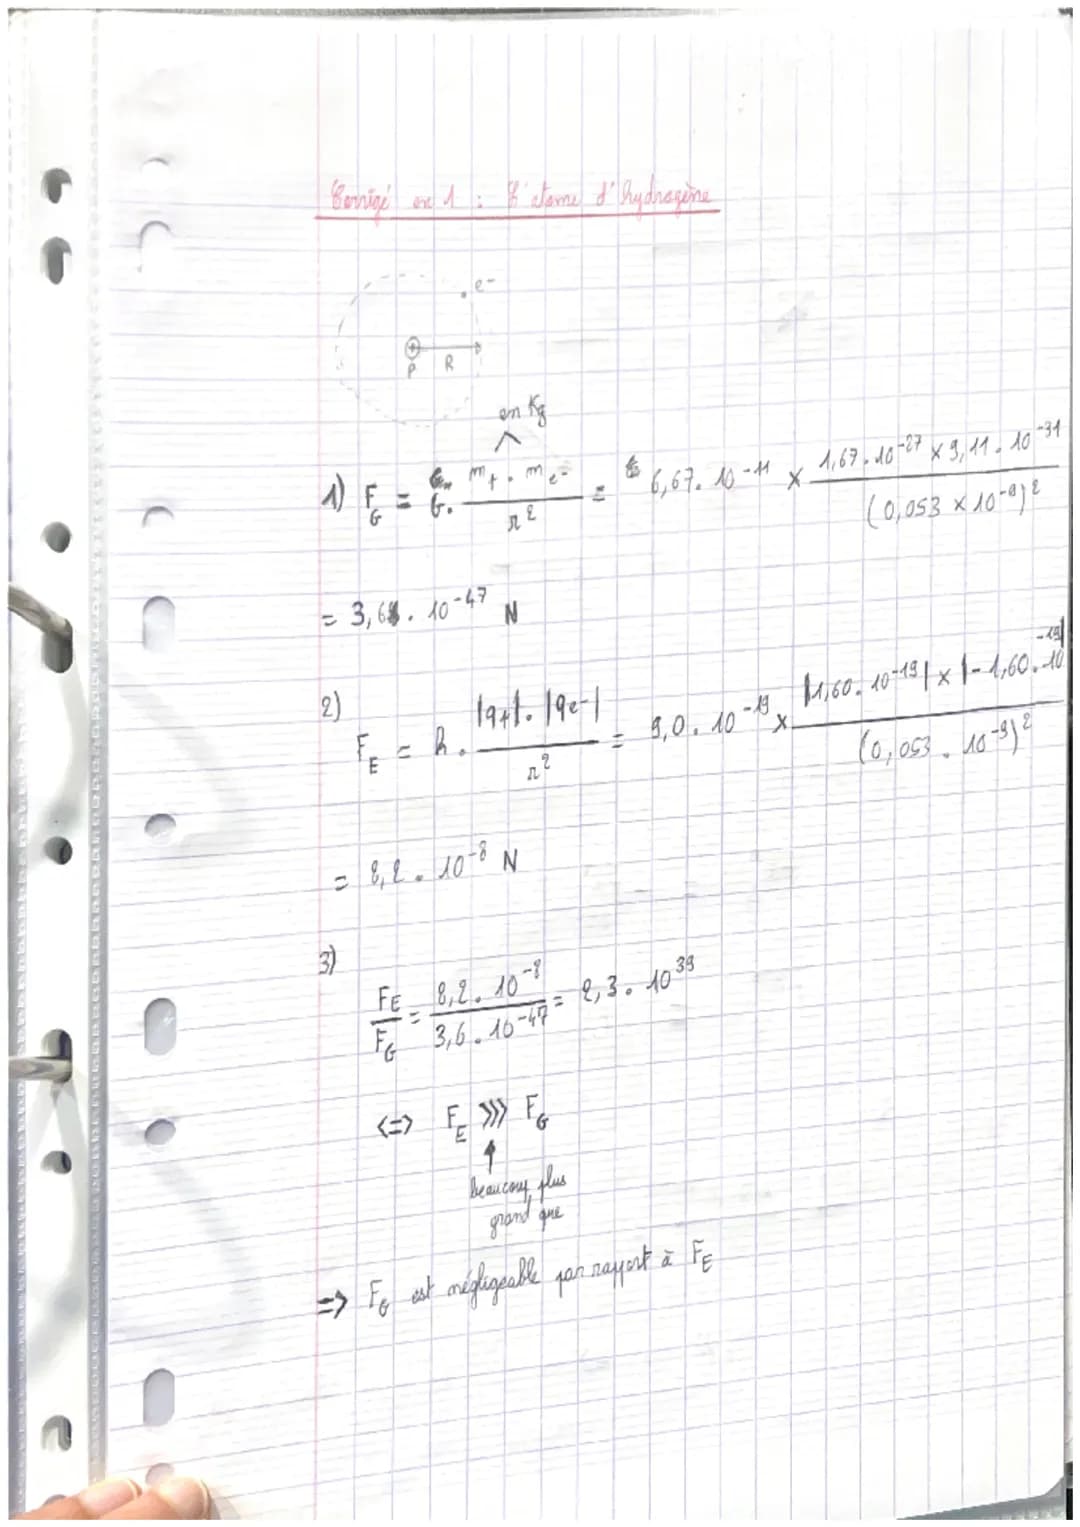 Corrigé ex 1 : L'atome d'hydrogène
e-
P R
en Kg
1) F_G = G. m+ . me- / r² = 6,67. 10^-11 × 1,67. 10^-27 × 9,11. 10^-31 / (0,053 × 10^-9)²
= 3,6. 10^-47 N
2) F_E = k. |q+|. |qe-| / r² = 9,0. 10^-19 × |1,60. 10^-19| × |-1,60. 10^-19| / (0,053. 10^-9)²
= 8,2. 10^-8 N
3) FE / FG = 8,2. 10^-8 / 3,6. 10^-47 = 2,3. 10^39
<=> F_E >>> F_G
beaucoup plus
grand que
=> F_G est négligeable par rapport à F_E